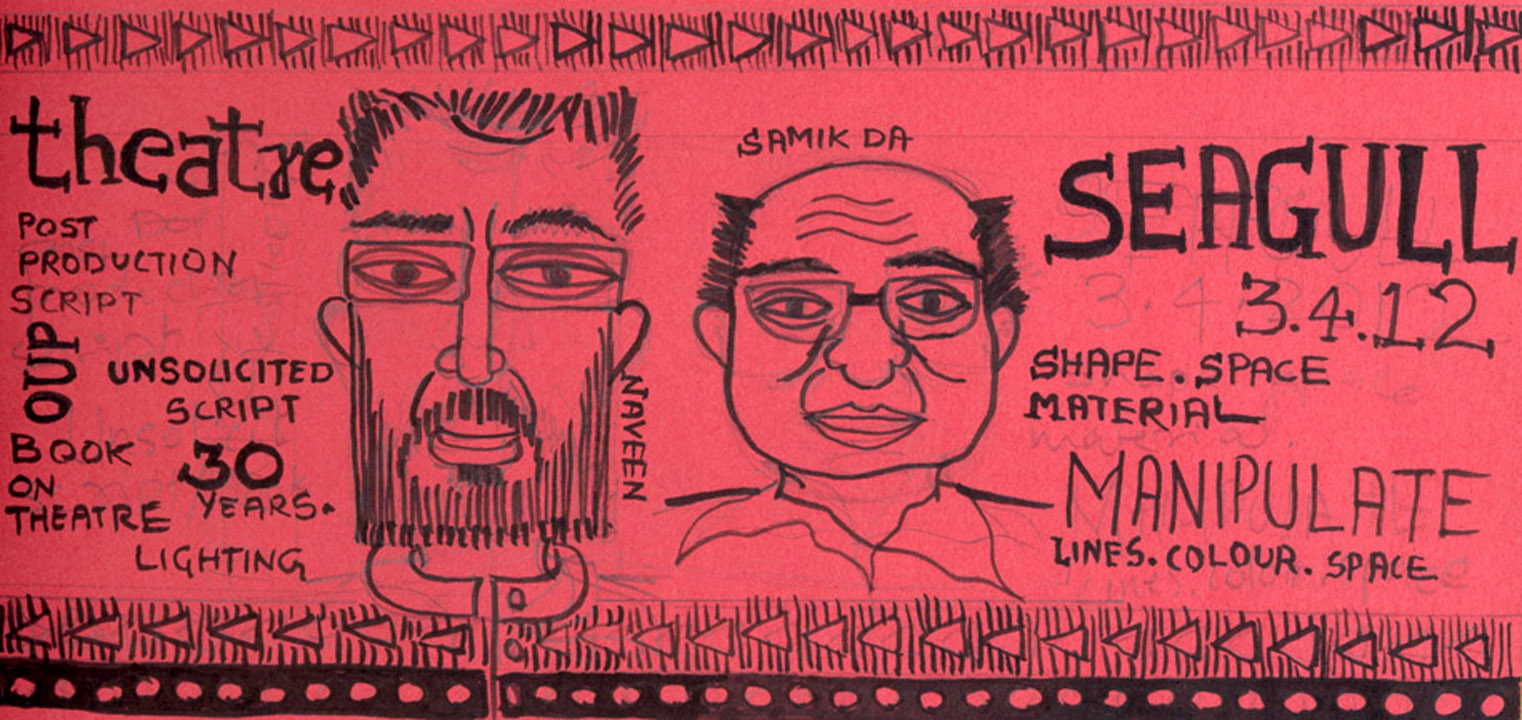 theatre
POST
PRODUCTION
SCRIPT
OUP
UNSOLICITED
SCRIPT
BOOK
ON
THEATRE
30
YEARS.
LIGHTING
NAVEEN
SAMIK DA
SEAGULL
3.4.12
SHAPE. SPACE
MATERIAL
MANIPULATE
LINES. COLOUR. SPACE